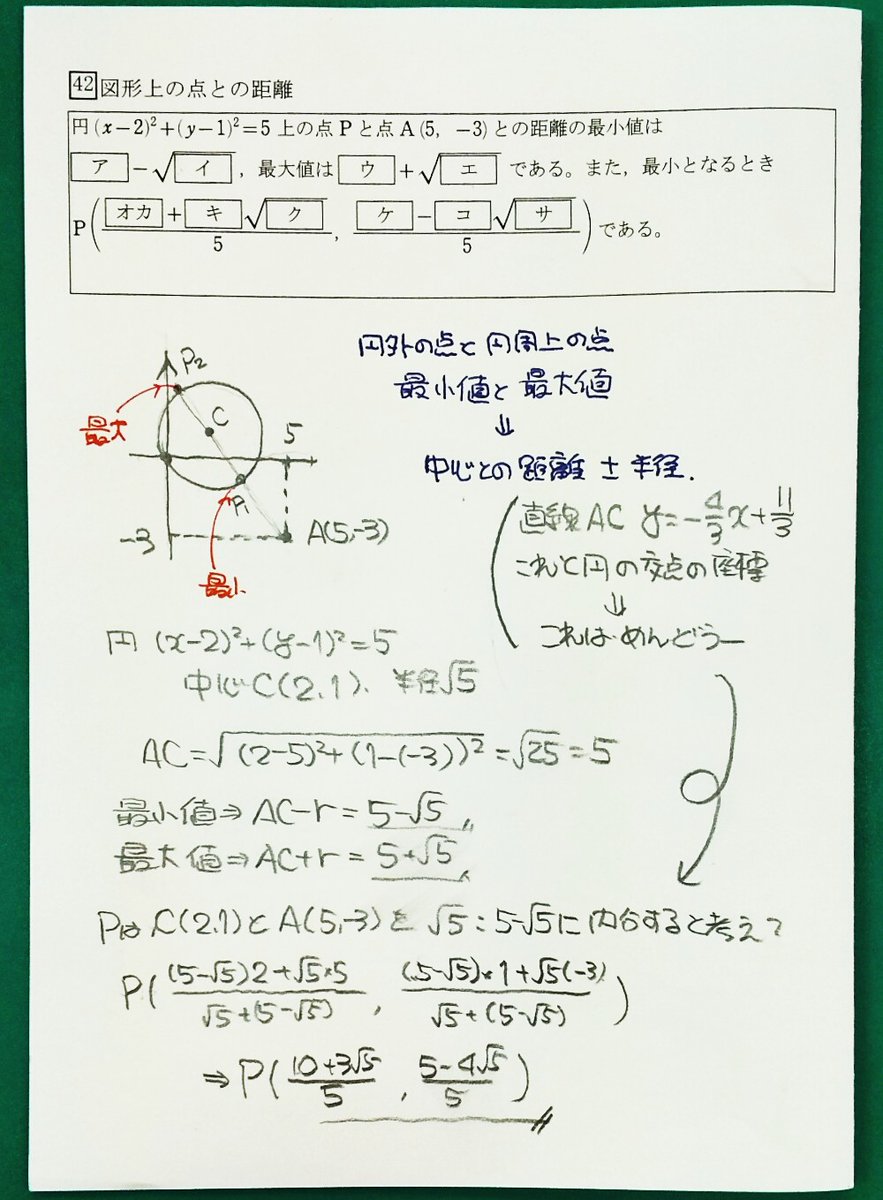 42 図形上の点との距離
円 (x−2)²+(y−1)²=5 上の点 P と点 A(5, −3) との距離の最小値は
ア −√イ , 最大値は ウ +√エ である。また, 最小となるとき
P( (オカ + キ√ク)/5 , (ケ − コ√サ)/5 ) である。
P₂
最大
C
5
P₁
−3
A(5,−3)
最小
円外の点と円周上の点
最小値と最大値
⇓
中心との距離 ± 半径.
直線AC y=−4/3x+11/3
これと円の交点の座標
⇓
これはめんどうー
円 (x−2)²+(y−1)²=5
中心C(2,1)、半径√5
AC=√((2−5)²+(1−(−3))²)=√25=5
最小値⇒ AC−r = 5−√5〃
最大値⇒ AC+r = 5+√5〃
Pは C(2,1)と A(5,−3)を √5 : 5−√5に内分すると考えて
P( ((5−√5)2+√5×5)/(√5+(5−√5)) , ((5−√5)×1+√5(−3))/(√5+(5−√5)) )
⇒ P( (10+3√5)/5 , (5−4√5)/5 )〃